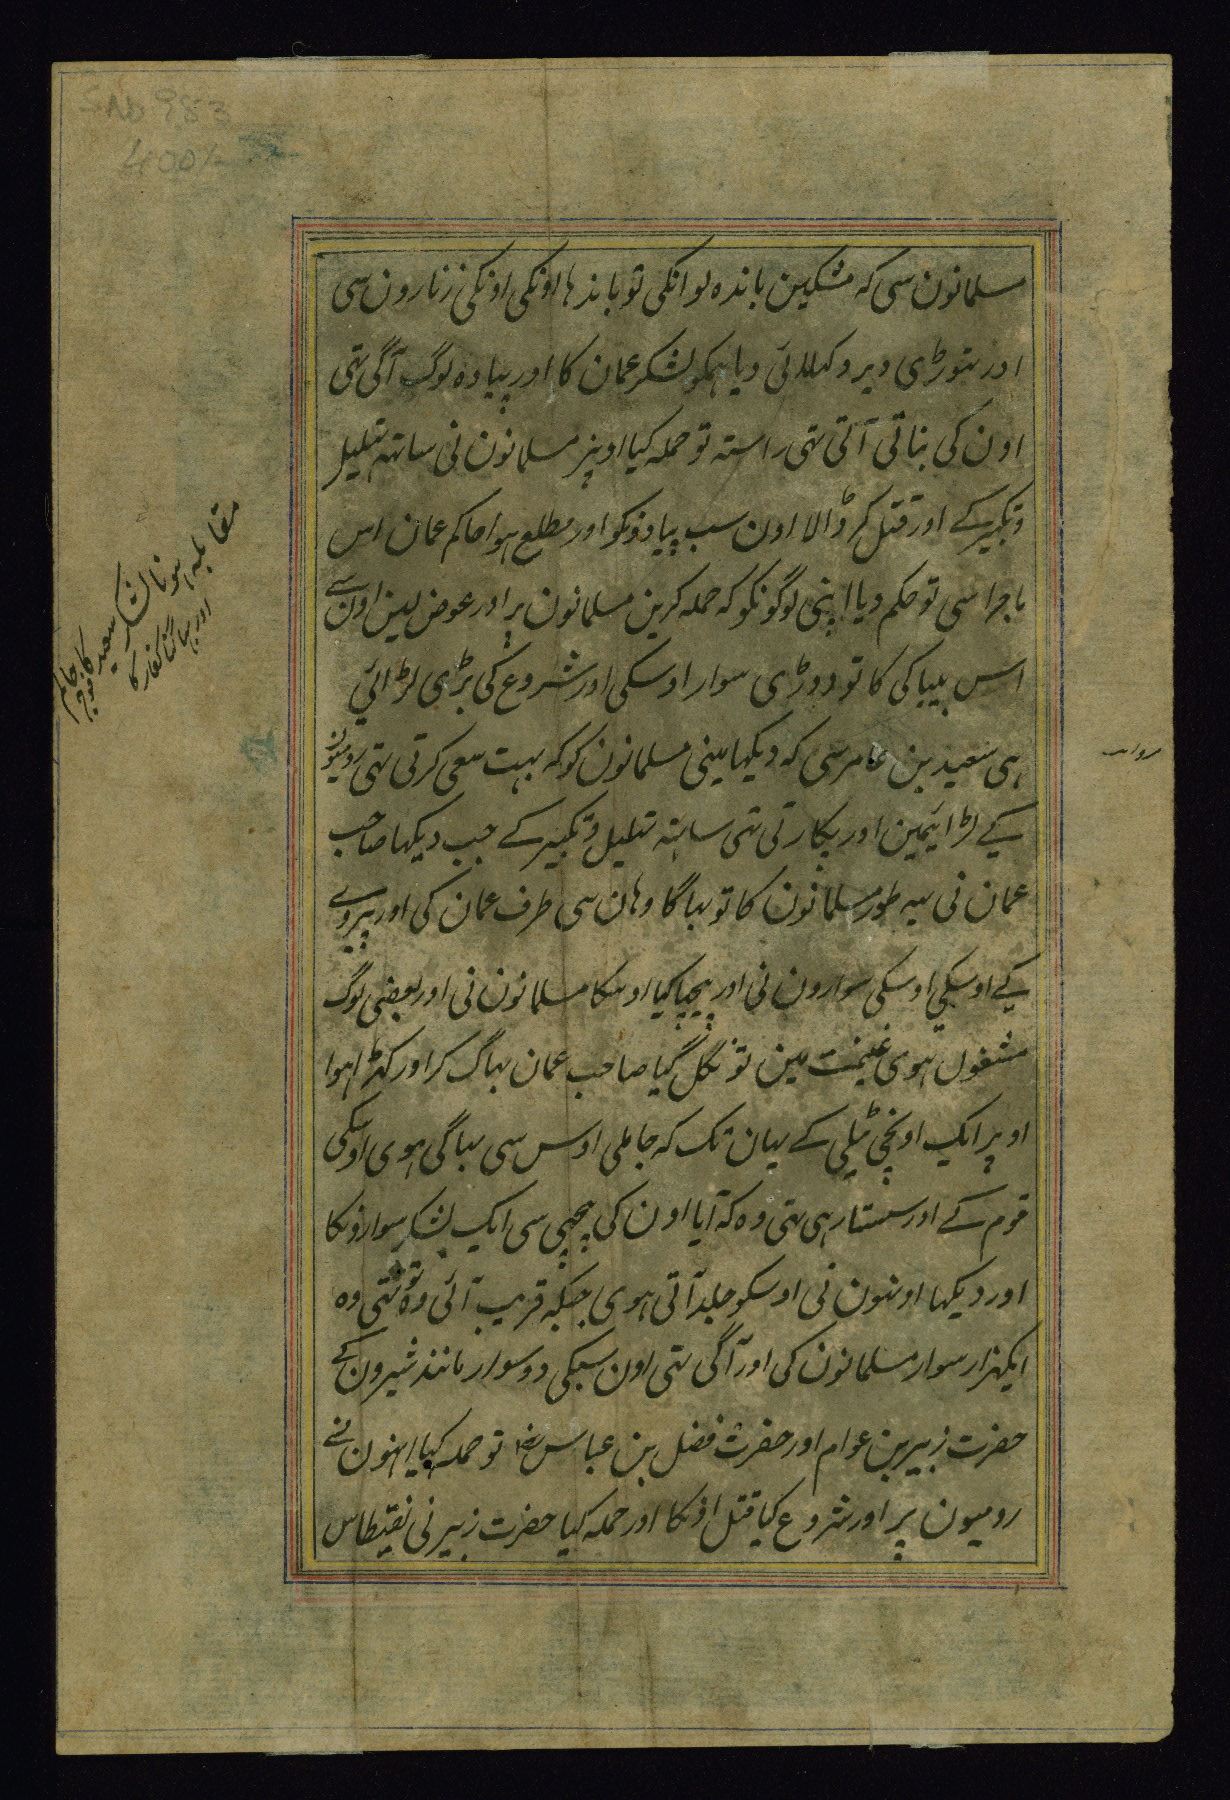 SND 983
400/-
مسلمانون سی که مشکین بانده لو انکی تو باندها اونکی اونکی زنارون سی
اور تهوڑی دیر دکهلائی دیا همکو لشکر عمان کا اور پیاده لوگ آگی تهی
اون کی بتاتی آتی تهی راسته تو حمله کیا اوپر مسلمانون نی ساتهه تهلیل
و تکبیر کے اور قتل کر ڈالا اون سب پیادونکو اور مطلع هوا حاکم عمان اس
ماجرا سی تو حکم دیا اپنی لوگونکو که حمله کرین مسلمانون پر اور عوض لین اون سے
اس بیباکی کا تو دوڑی سوار اوسکی اور شروع کی بڑی لڑائی
روایت
هی سعید بن عامر سی که دیکها مینی مسلمانون کو که بهت سعی کرتی تهی رومیون
کے لڑائیمین اور پکارتی تهی ساتهه تهلیل و تکبیر کے جب دیکها صاحب
عمان نی یه طور مسلمانون کا تو بهاگا وهان سی طرف عمان کی اور پیروے
کے اوسکی اوسکی سوارون نی اور پیچها کیا اوسکا مسلمانون نی اور بعضی لوگ
مشغول هوی غنیمت مین تو نکل گیا صاحب عمان بهاگ کر اور کهڑا هوا
اوپر ایک اونچی ٹیلی کے یهان تک که جا ملی اوس سی بهاگی هوی اوسکی
قوم کے اور سستا رهی تهی وه که آیا اون کی پیچهی سی ایک لشکر سوارونکا
اور دیکها اونهون نی اوسکو جلد آتی هوی جبکه قریب آئی وه تو تهی وه
ایکهزار سوار مسلمانون کی اور آگی تهی اون سبکی دو سوار مانند شیرون کے
حضرت زبیر بن عوام اور حضرت فضل بن عباس رض تو حمله کیا انهون نے
رومیون پر اور شروع کیا قتل اونکا اور حمله کیا حضرت زبیر نی نقیطاس
مقابله هونا لشکر سعید کا فوج حاکم
اور بهاگنا کفار کا